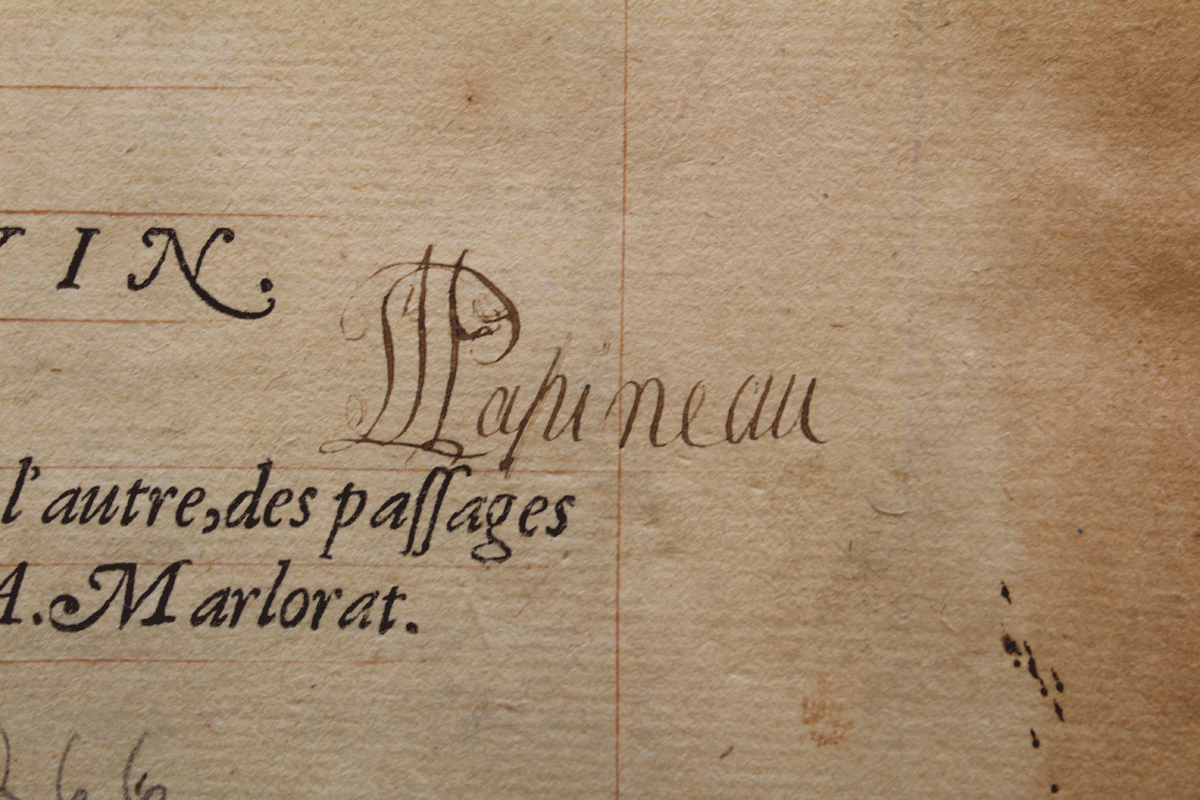 VIN.
Papineau
l'autre, des paſſages
A. Marlorat.
266